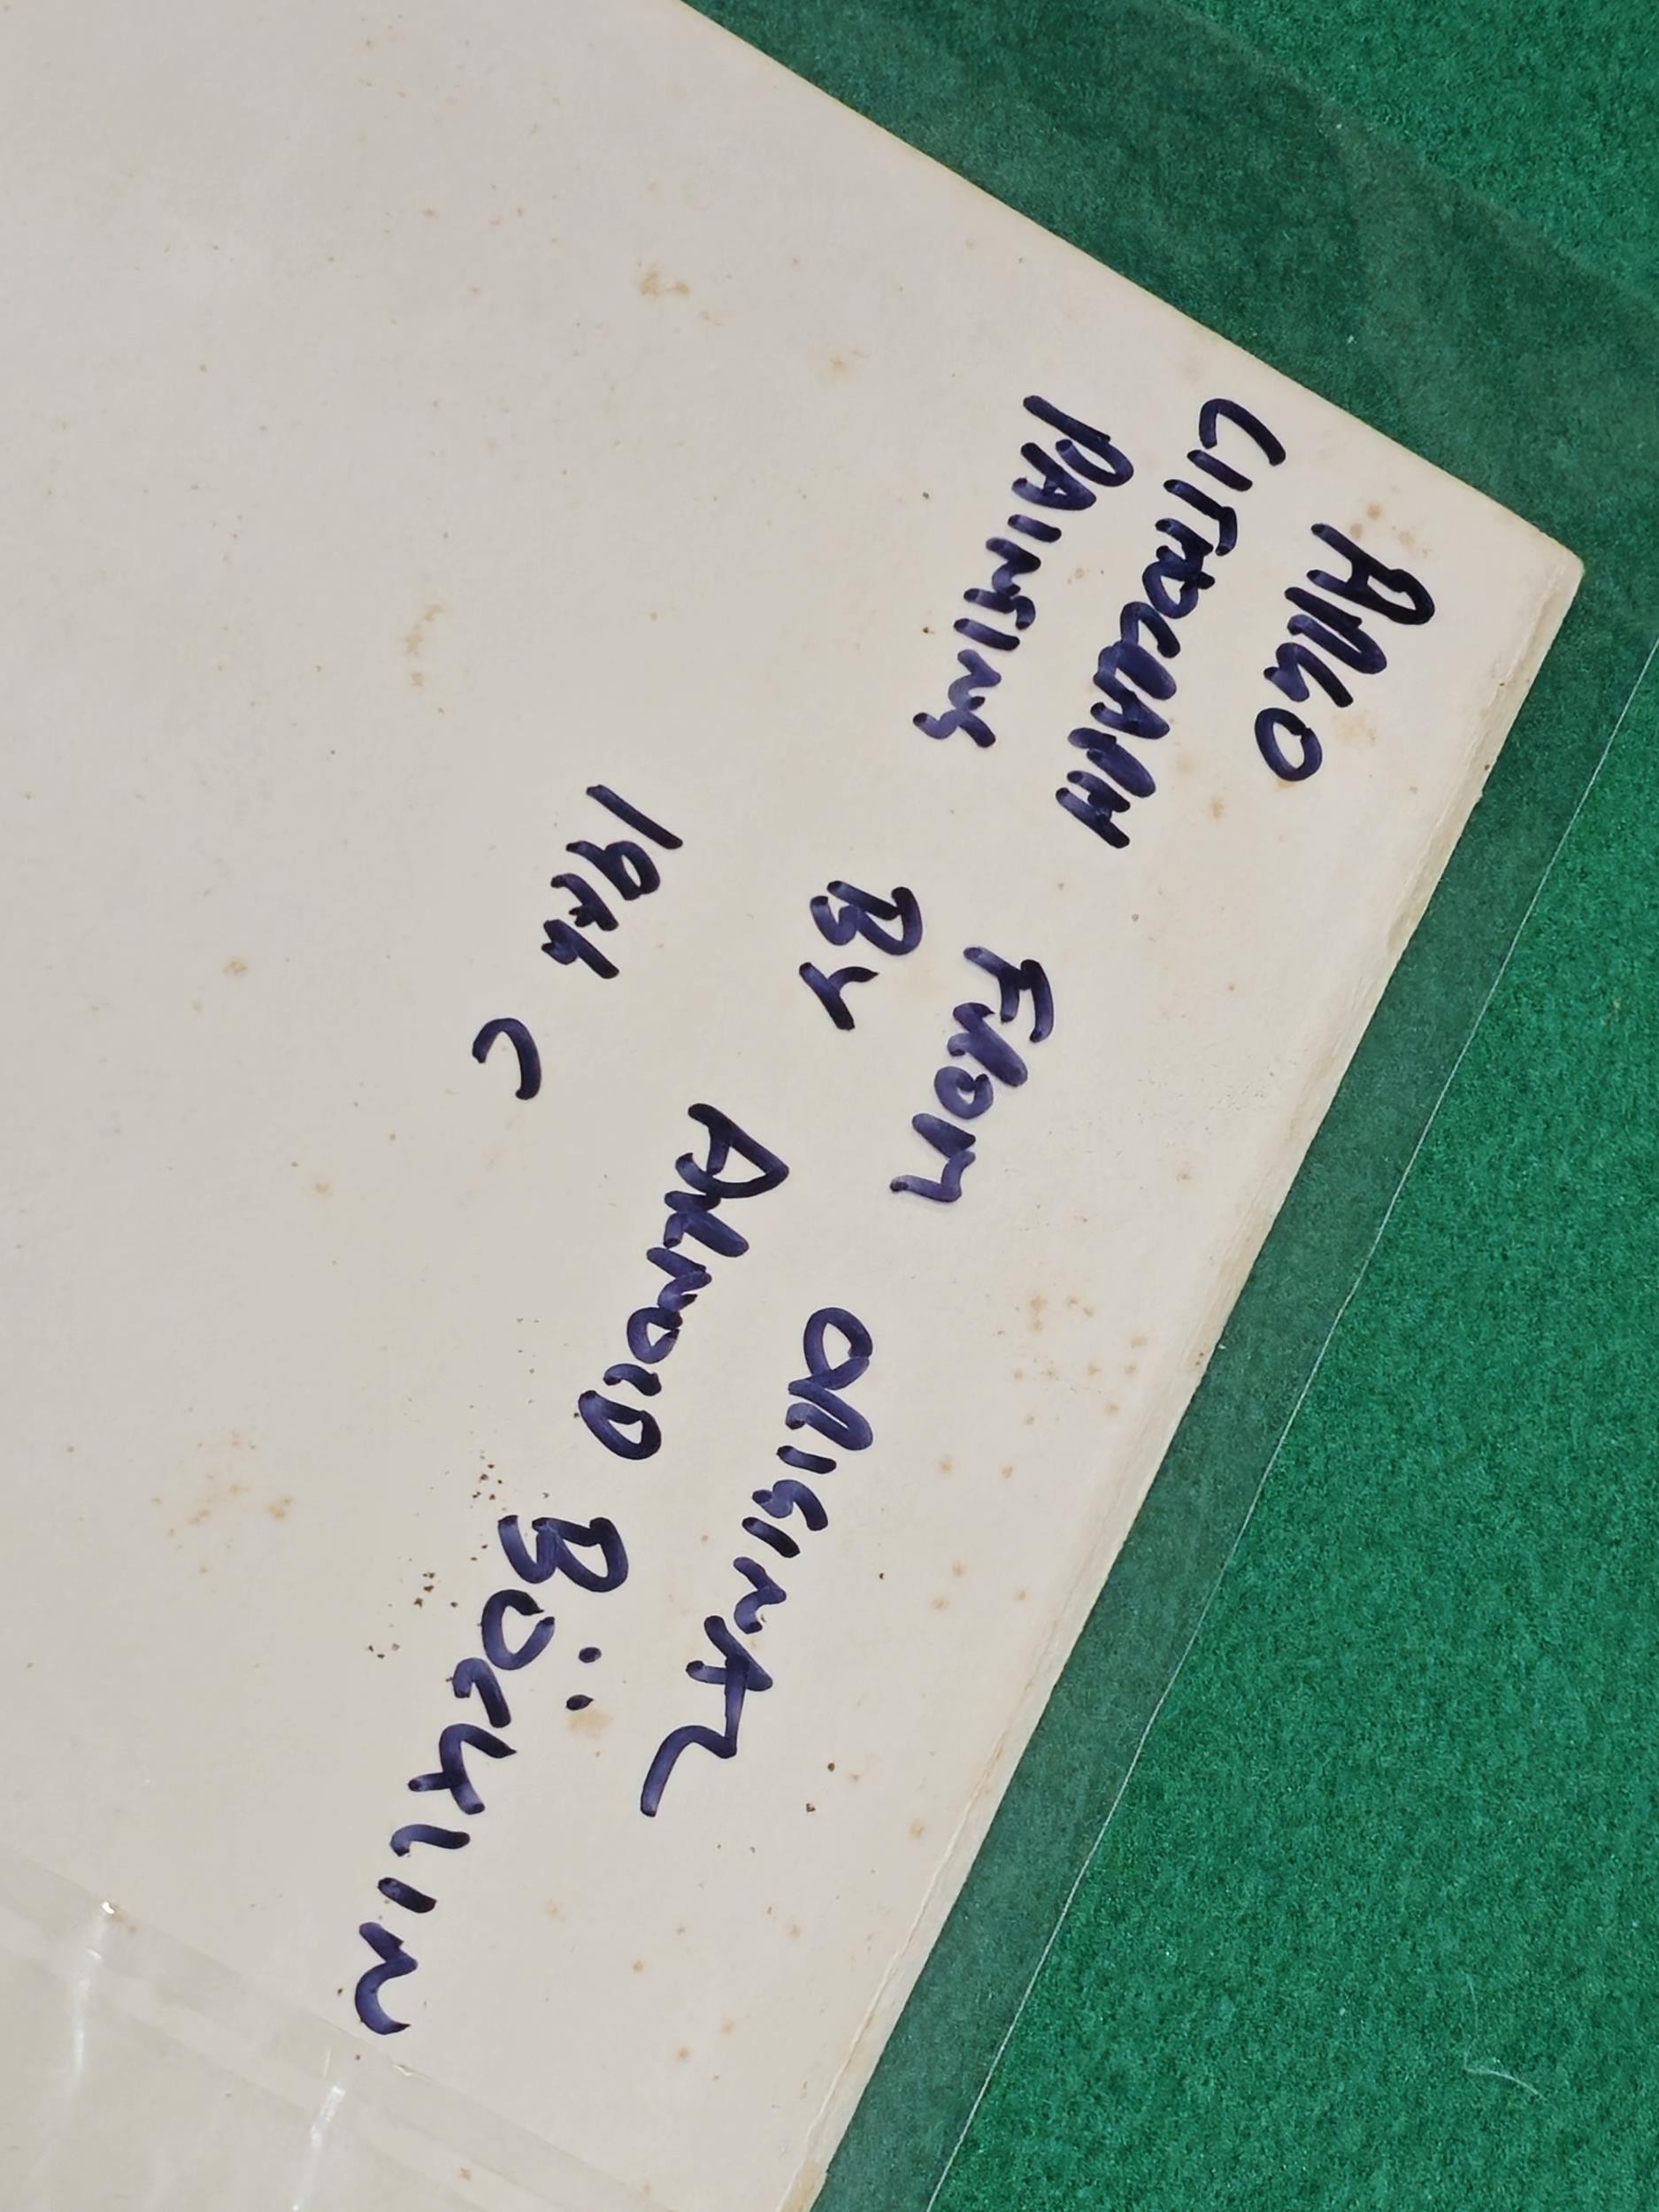 ARGO
LITHOGRAPH FROM ORIGINAL
PAINTING BY ARNOLD BÖCKLIN
19th C